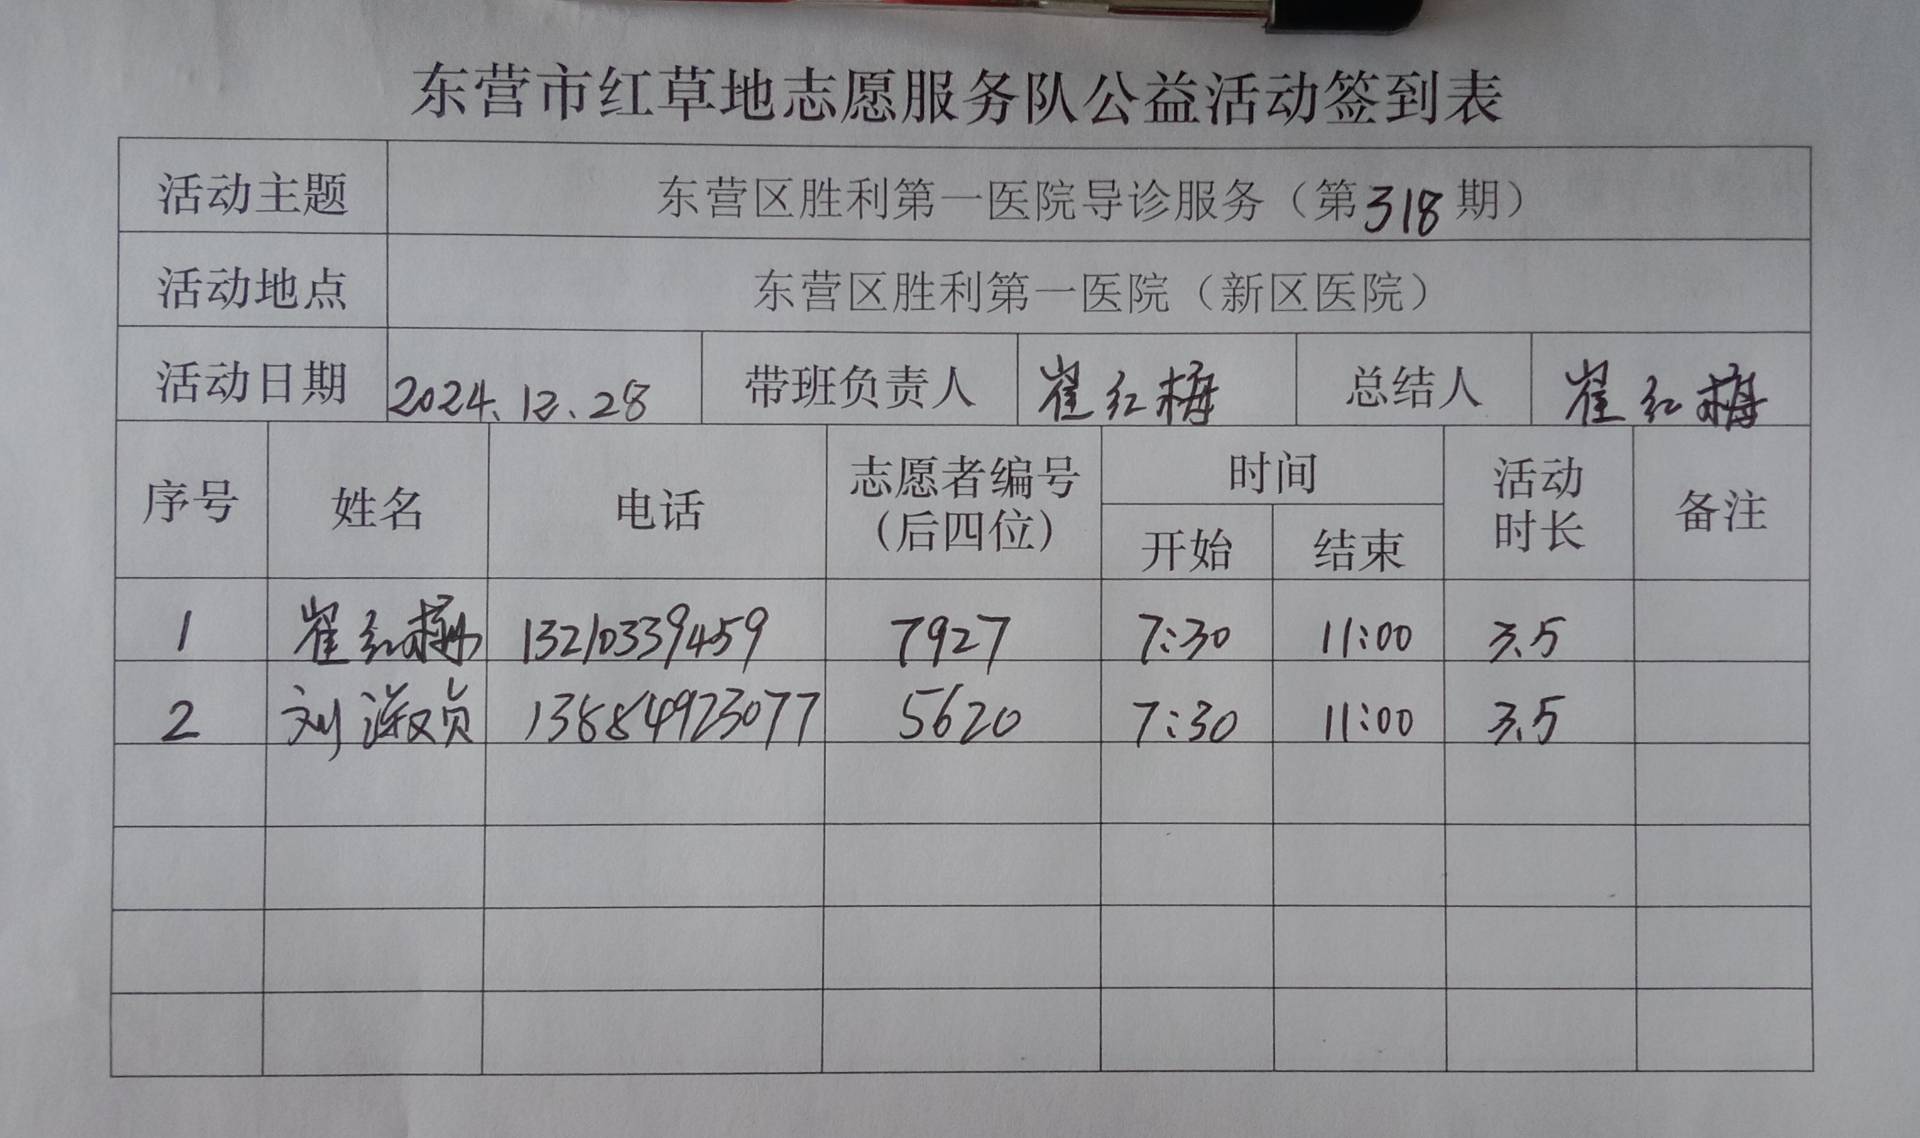 东营市红草地志愿服务队公益活动签到表
活动主题 东营区胜利第一医院导诊服务（第318期）
活动地点 东营区胜利第一医院（新区医院）
活动日期 2024.12.28 带班负责人 崔红梅 总结人 崔红梅
序号 姓名 电话 志愿者编号（后四位） 时间 开始 结束 活动时长 备注
1 崔红梅 13210339459 7927 7:30 11:00 3.5
2 刘淑贞 13884923077 5620 7:30 11:00 3.5